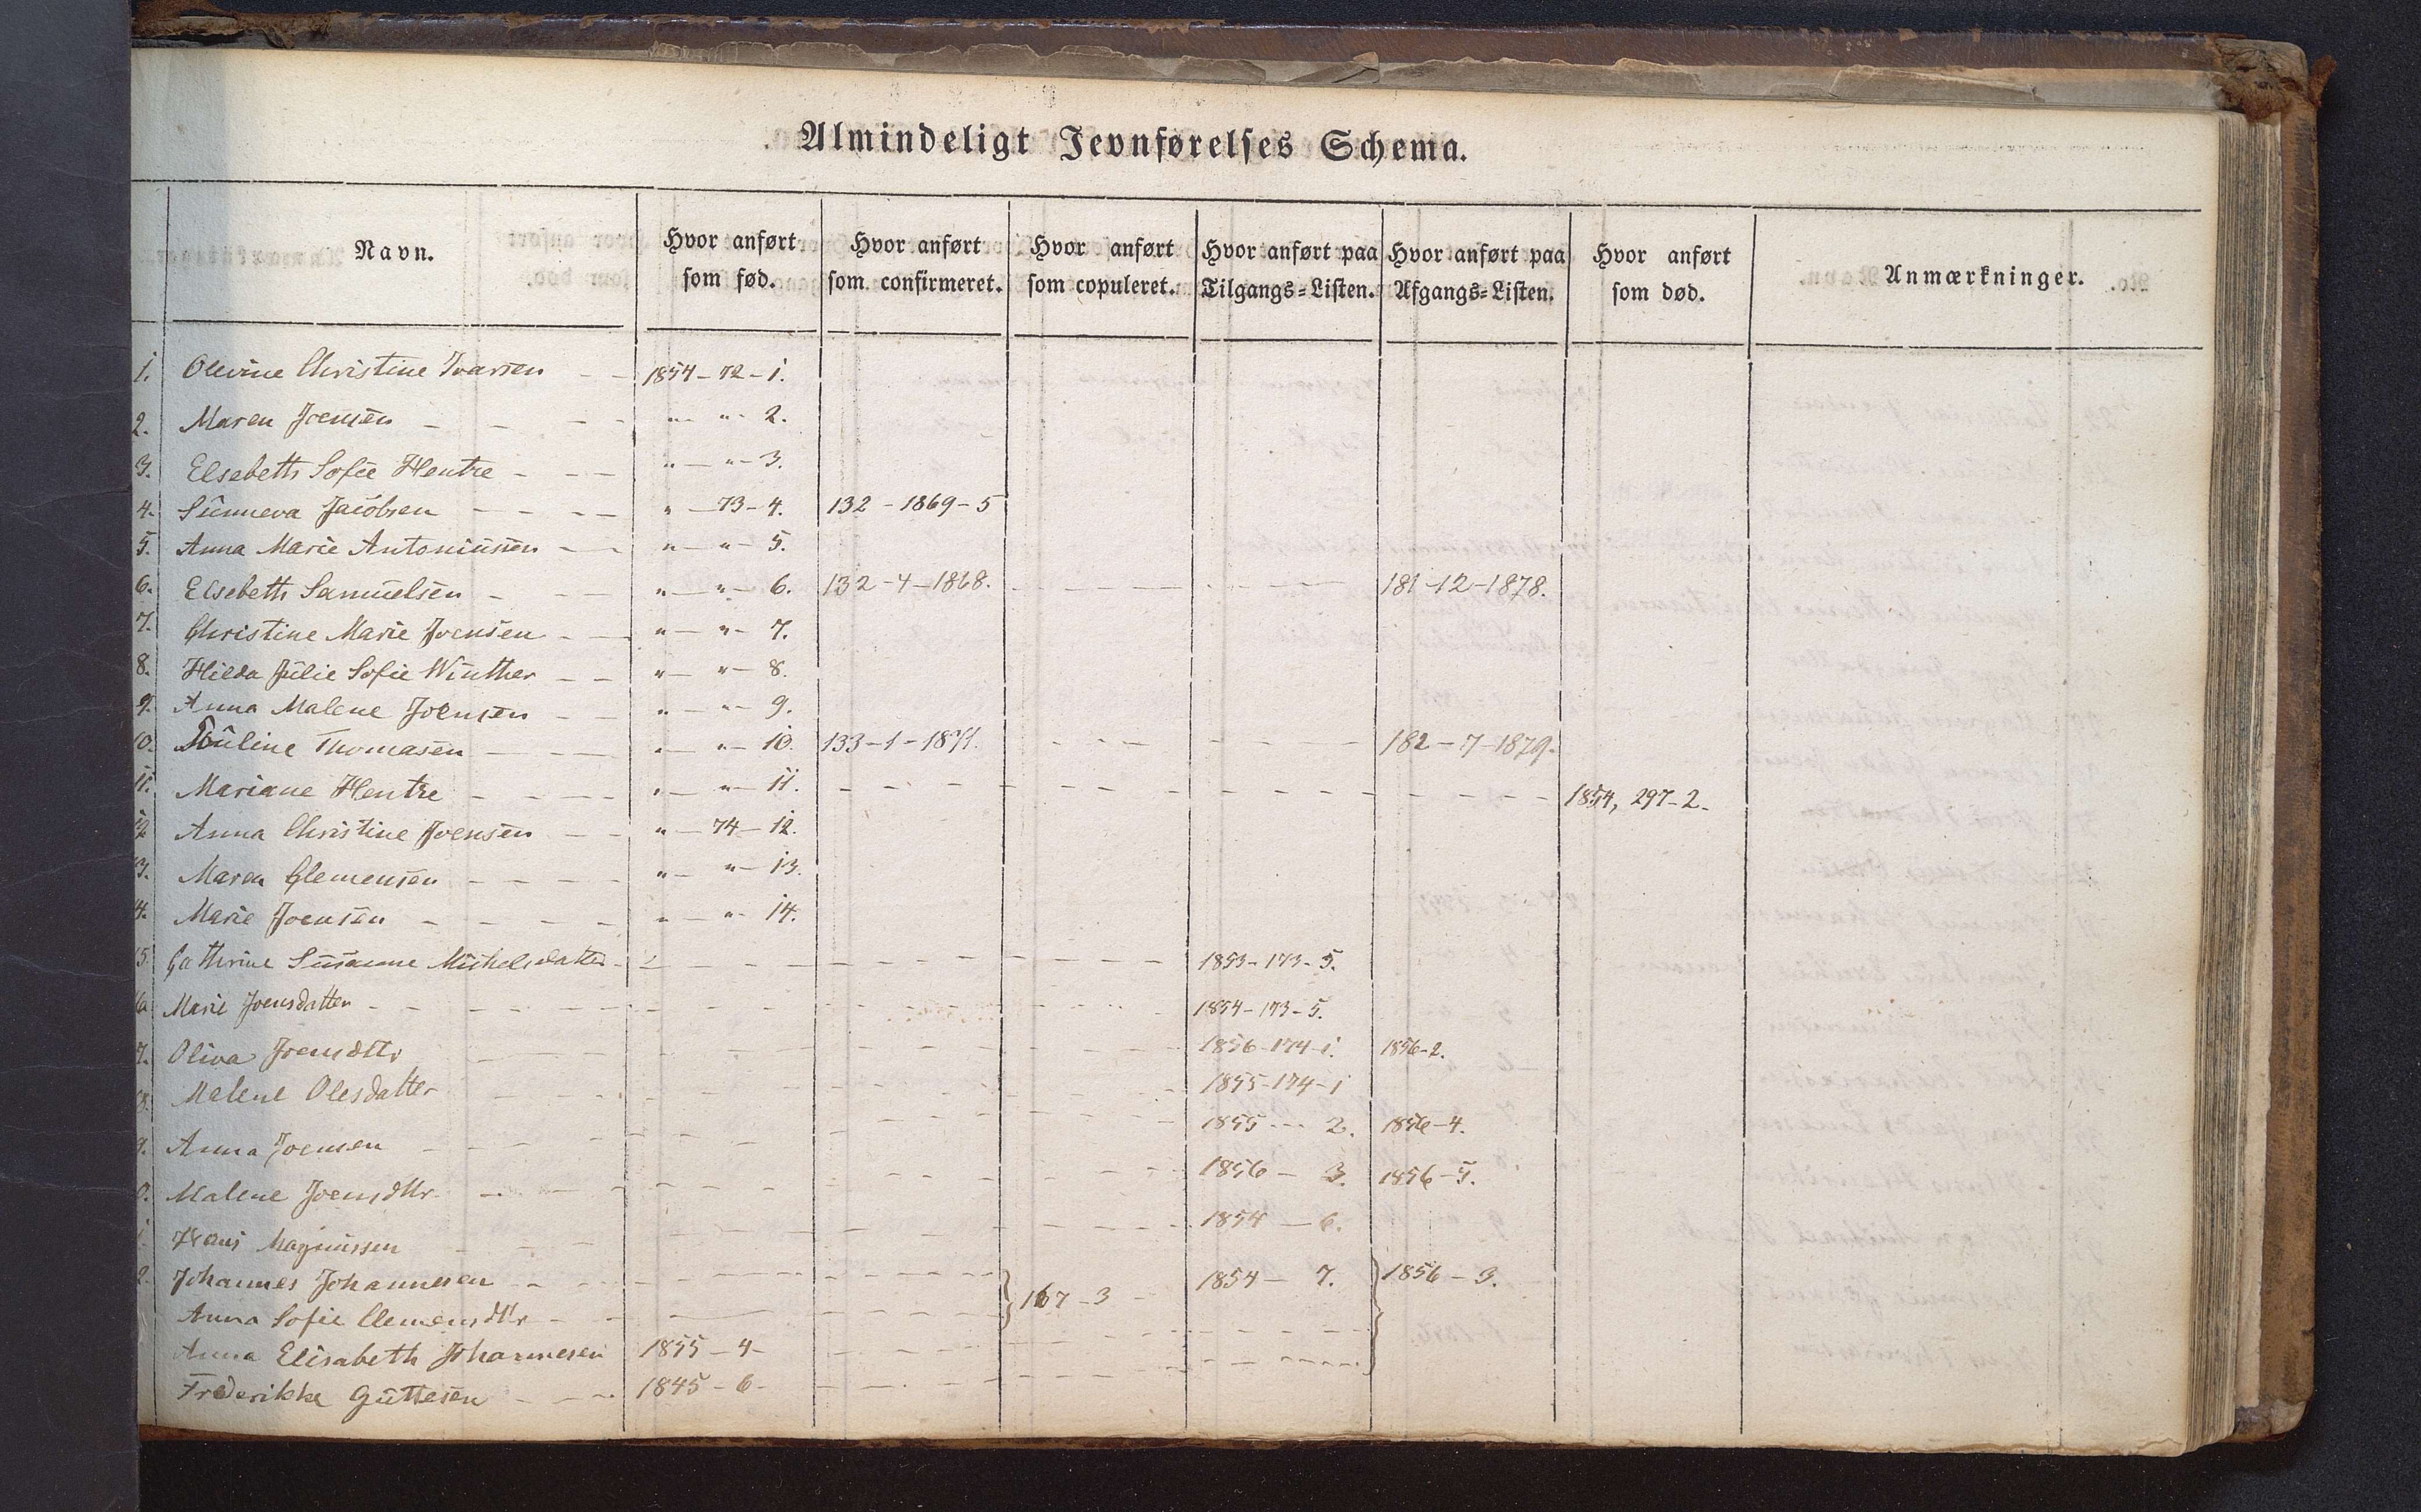 Almindeligt Jevnførelses Schema.
Navn. Hvor anført som fød. Hvor anført som confirmeret. Hvor anført som copuleret. Hvor anført paa Tilgangs=Listen. Hvor anført paa Afgangs=Listen. Hvor anført som død. Anmærkninger.
1. Olevine Christine Ivarsen - - 1854 - 72 - 1.
2. Maren Joensen - - - - " - " - 2.
3. Elsebeth Sofie Hentze - - - " - " - 3.
4. Sunneva Jacobsen - - - - " - 73 - 4. 132 - 1869 - 5
5. Anna Marie Antoniussen - - " - " - 5.
6. Elsebeth Samuelsen - - - " - " - 6. 132 - 4 - 1868. - - - - 181 - 12 - 1878.
7. Christine Marie Joensen - - " - " - 7.
8. Hilda Julie Sofie Winther - - " - " - 8.
9. Anna Malene Joensen - - " - " - 9.
10. Pouline Thomasen - - - " - " - 10. 133 - 1 - 1871. - - - - 182 - 7 - 1879.
11. Mariane Hentze - - - - " - " - 11. - - - - - - - - 1854, 297 - 2.
12 Anna Christine Joensen - - " - 74 - 12.
3. Maren Clemensen - - - - " - " - 13.
4. Marie Joensen - - - - " - " - 14.
5. Cathrine Susanne Michelsdatter - - - - - - - 1853 - 173 - 5.
6 Marie Joensdatter - - - - - - - - 1854 - 173 - 5.
7. Oliva Joensdttr - - - - - - 1856 - 174 - 1. 1856 - 2.
8. Malene Olesdatter - - - - - - 1855 - 174 - 1
9. Anna Joensen - - - - - - 1855 - - - 2. 1856 - 4.
0. Malene Joensdttr. - - - - - - 1856 - 3. 1856 - 5.
1. Hans Magnussen - - - - - - 1854 - 6.
2. Johannes Johannesen - - - - - - 167 - 3 - 1854 - 7. 1856 - 3.
Anna Sofie Clemensdttr - - - - - -
Anna Elisabeth Johannesen 1855 - 4 - - - - - -
Frederikke Guttesen - - - 1845 - 6 - - - - -